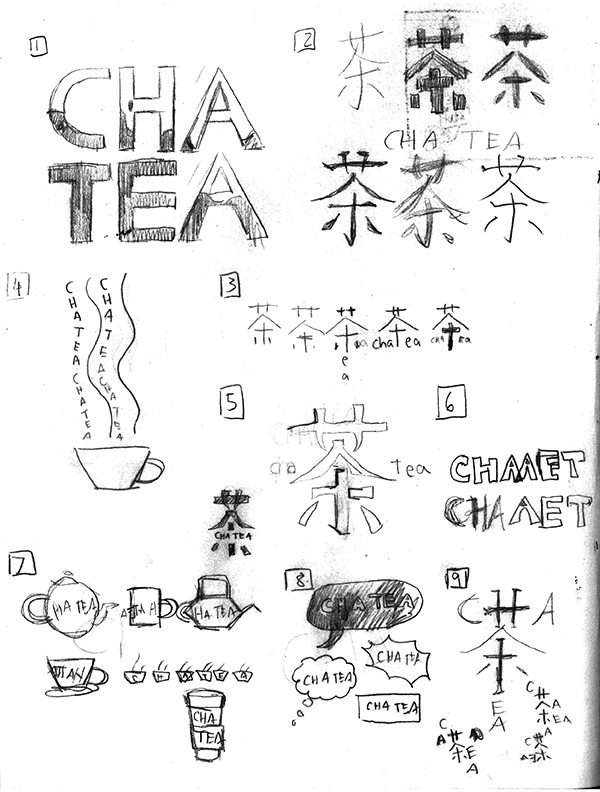 1
CHA
TEA
2
茶 茶 茶
CHA TEA
茶 茶 茶
3
茶 茶 茶 茶 茶
e
a
chatea
CHA EA
4
CHATEACHATEA
CHATEACHATEA
5
茶
cha tea
茶
CHA TEA
6
CHAAET
CHAAET
7
HA TEA
HA TEA
C H A T E A
CHA
TEA
8
CHA TEA
CHA TEA
CHATEA
CHATEA
9
CHA
茶
EA
茶
C
A
E
A
茶
C
A
EA
茶